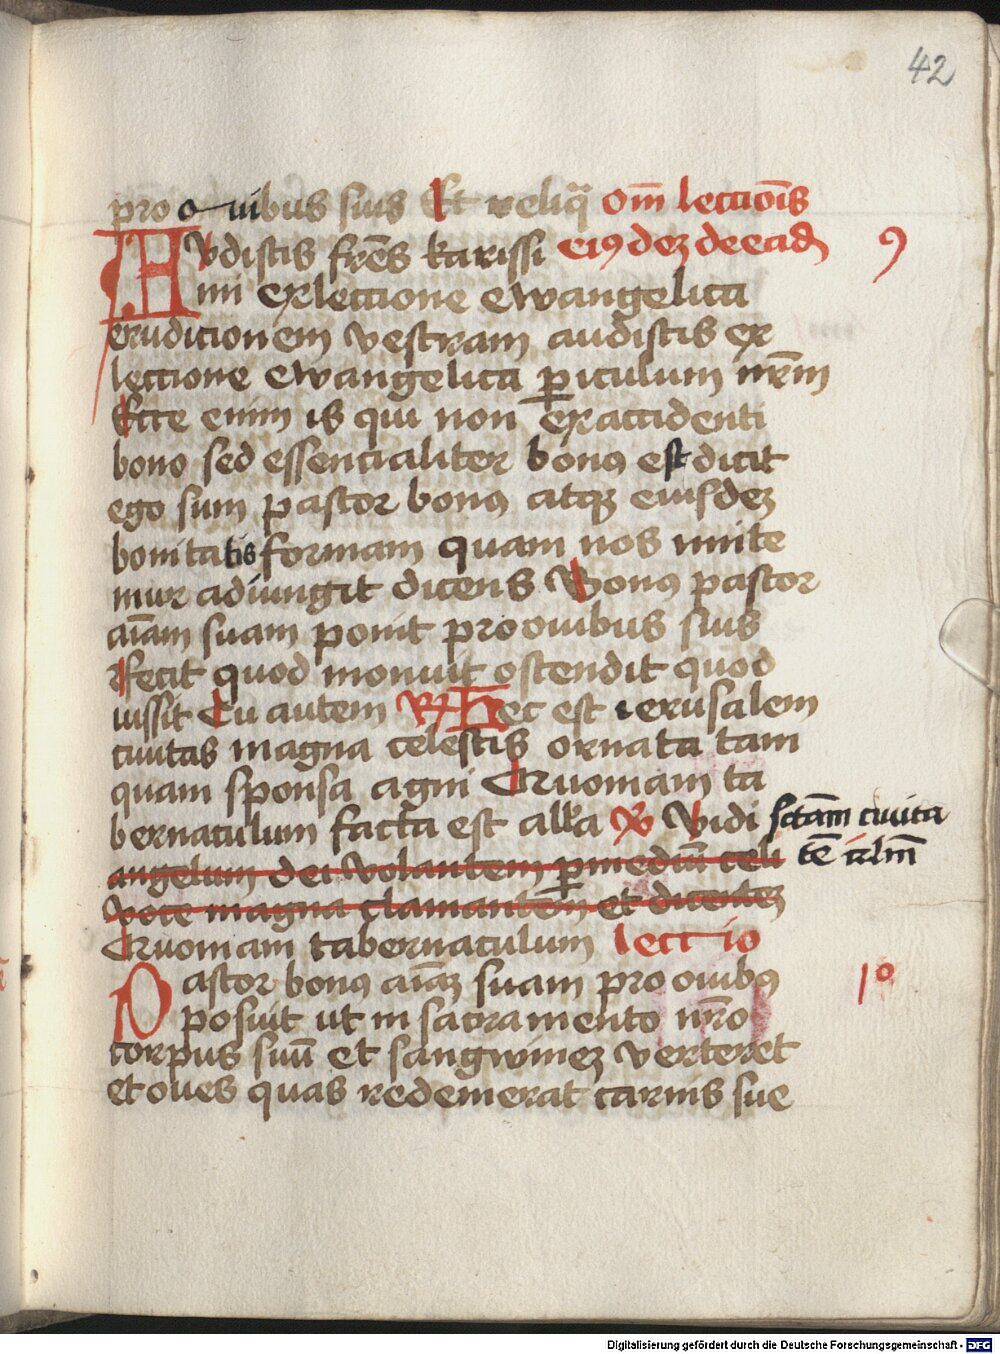 42
pro ouibus suis Et reliq̄ Om̄ lectiōis
Avdistis fr̄es karissi eiꝯdeꝫ de eadꝫ 9
mi ex lectione ewangelica
erudicionem vestram audistis ex
lectione ewangelica ꝑiculum nr̄m
Ecce enim is qui non ex accidenti
bono sed essencialiter bonꝯ est dicit
ego sum pastor bonꝯ atqꝫ eiusdeꝫ
bonitatis formam quam nos imite
mur adiungit dicens Bonꝯ pastor
aīam suam ponit pro ouibus suis
Fecit quod monuit ostendit quod
iussit Tu autem R Hec est ierusalem
ciuitas magna celestis ornata tam
quam sponsa agni Quoniam ta
bernaculum facta est all̄a ꝟ Vidi sc̄tam ciuita
tē irlm̄
angelum dei volantem ꝑ mediū celi
voce magna clamantem et dicenteꝫ
Quoniam tabernaculum lectio
Pastor bonꝯ aīaꝫ suam pro ouibꝯ 10
posuit ut in sacramento nr̄o
corpus suū et sangwineꝫ verteret
et oues quas redemerat carnis sue
Digitalisierung gefördert durch die Deutsche Forschungsgemeinschaft - DFG